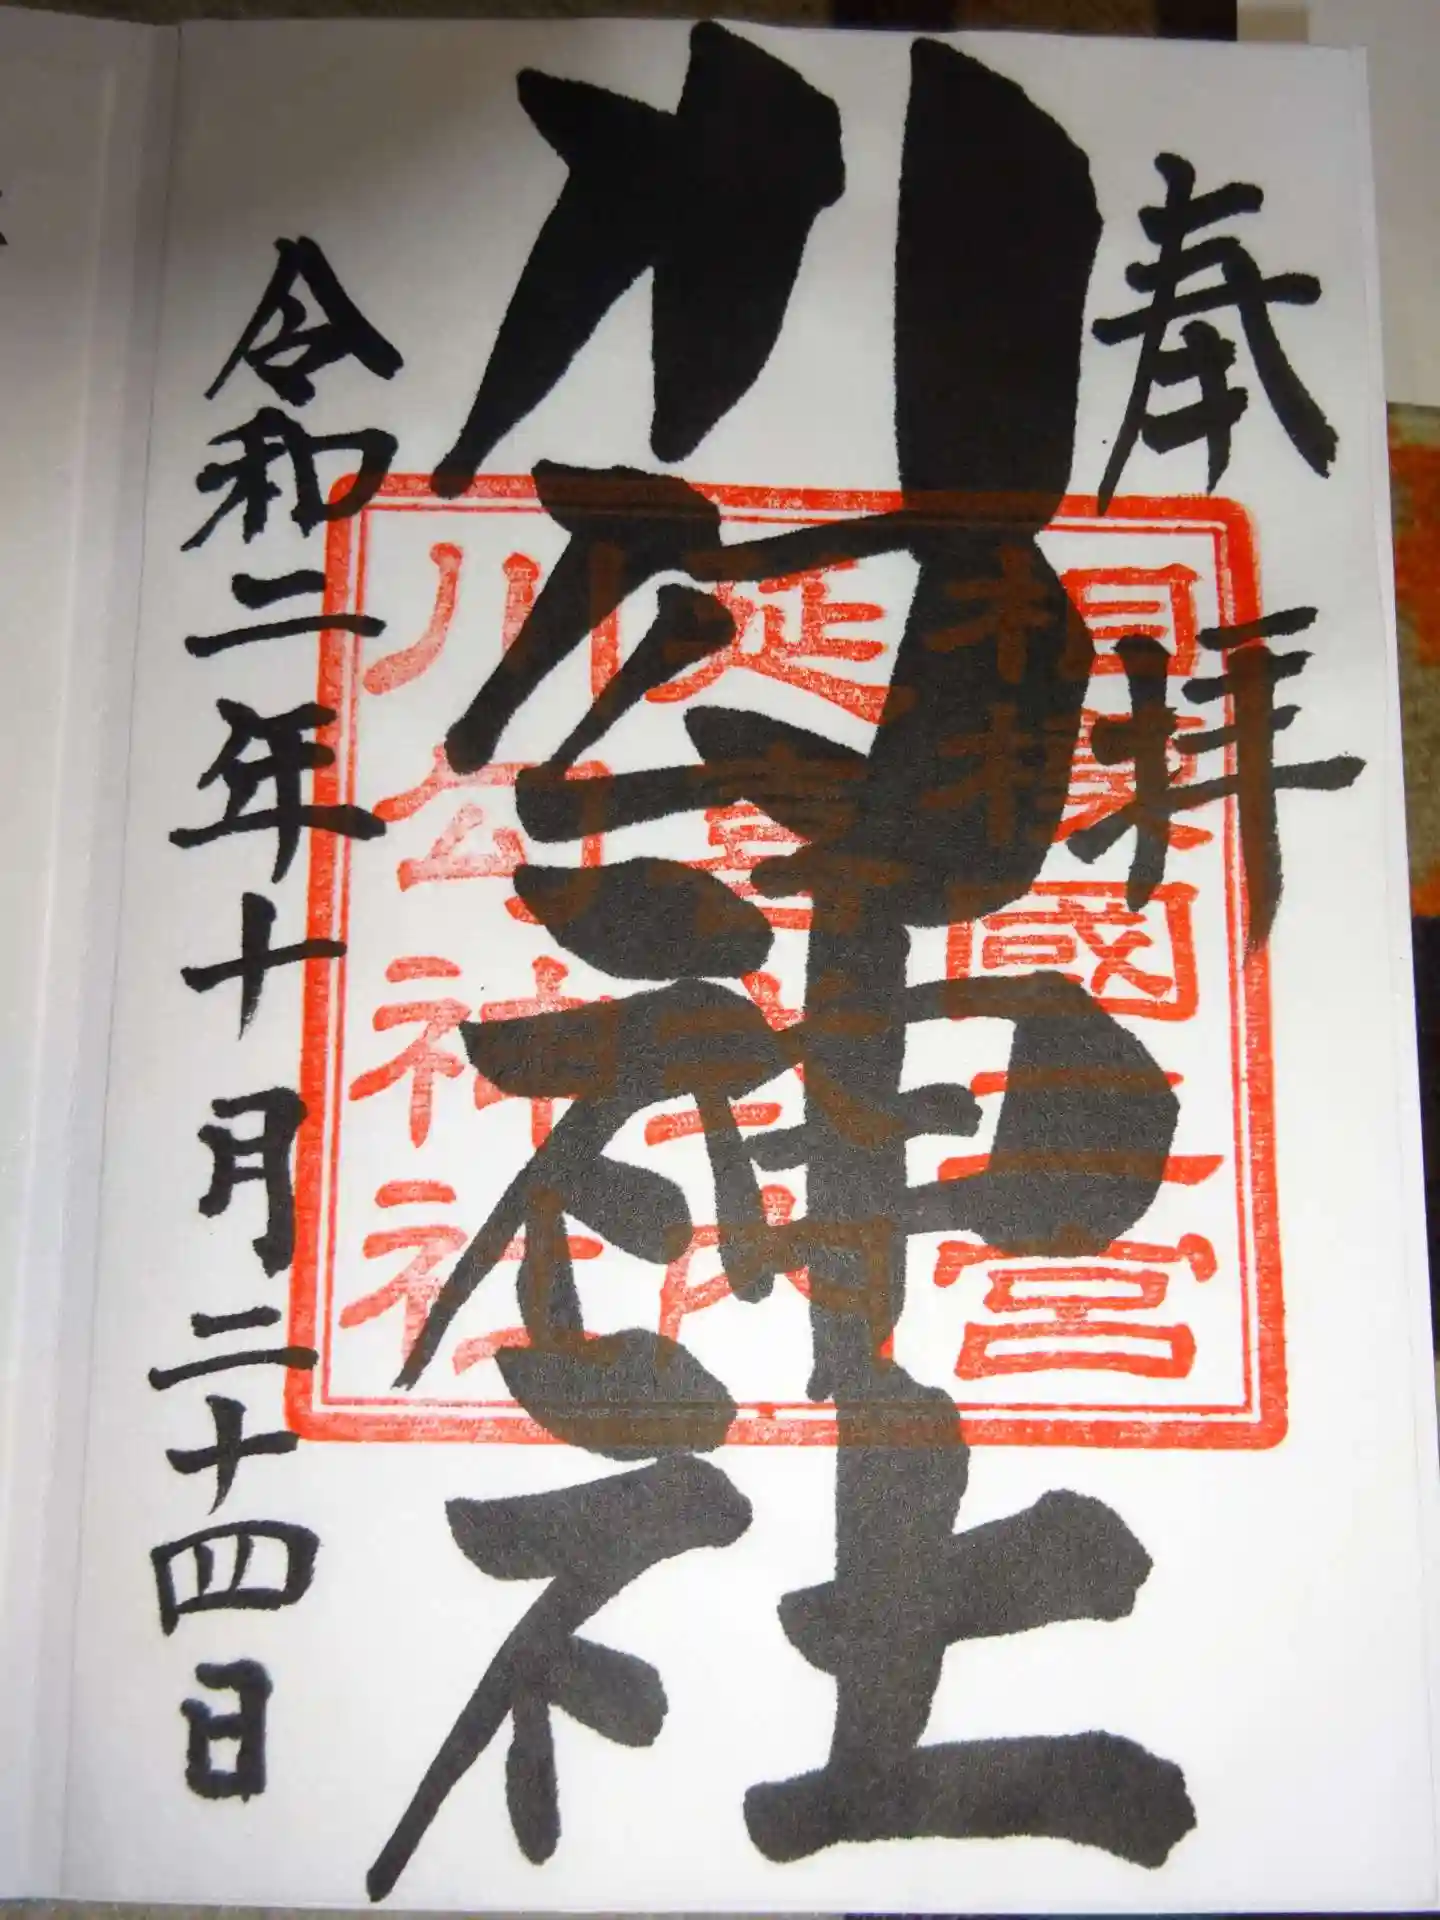 奉拝
川匂神社
令和二年十月二十四日
相模國二宮
延喜式内
川匂神社